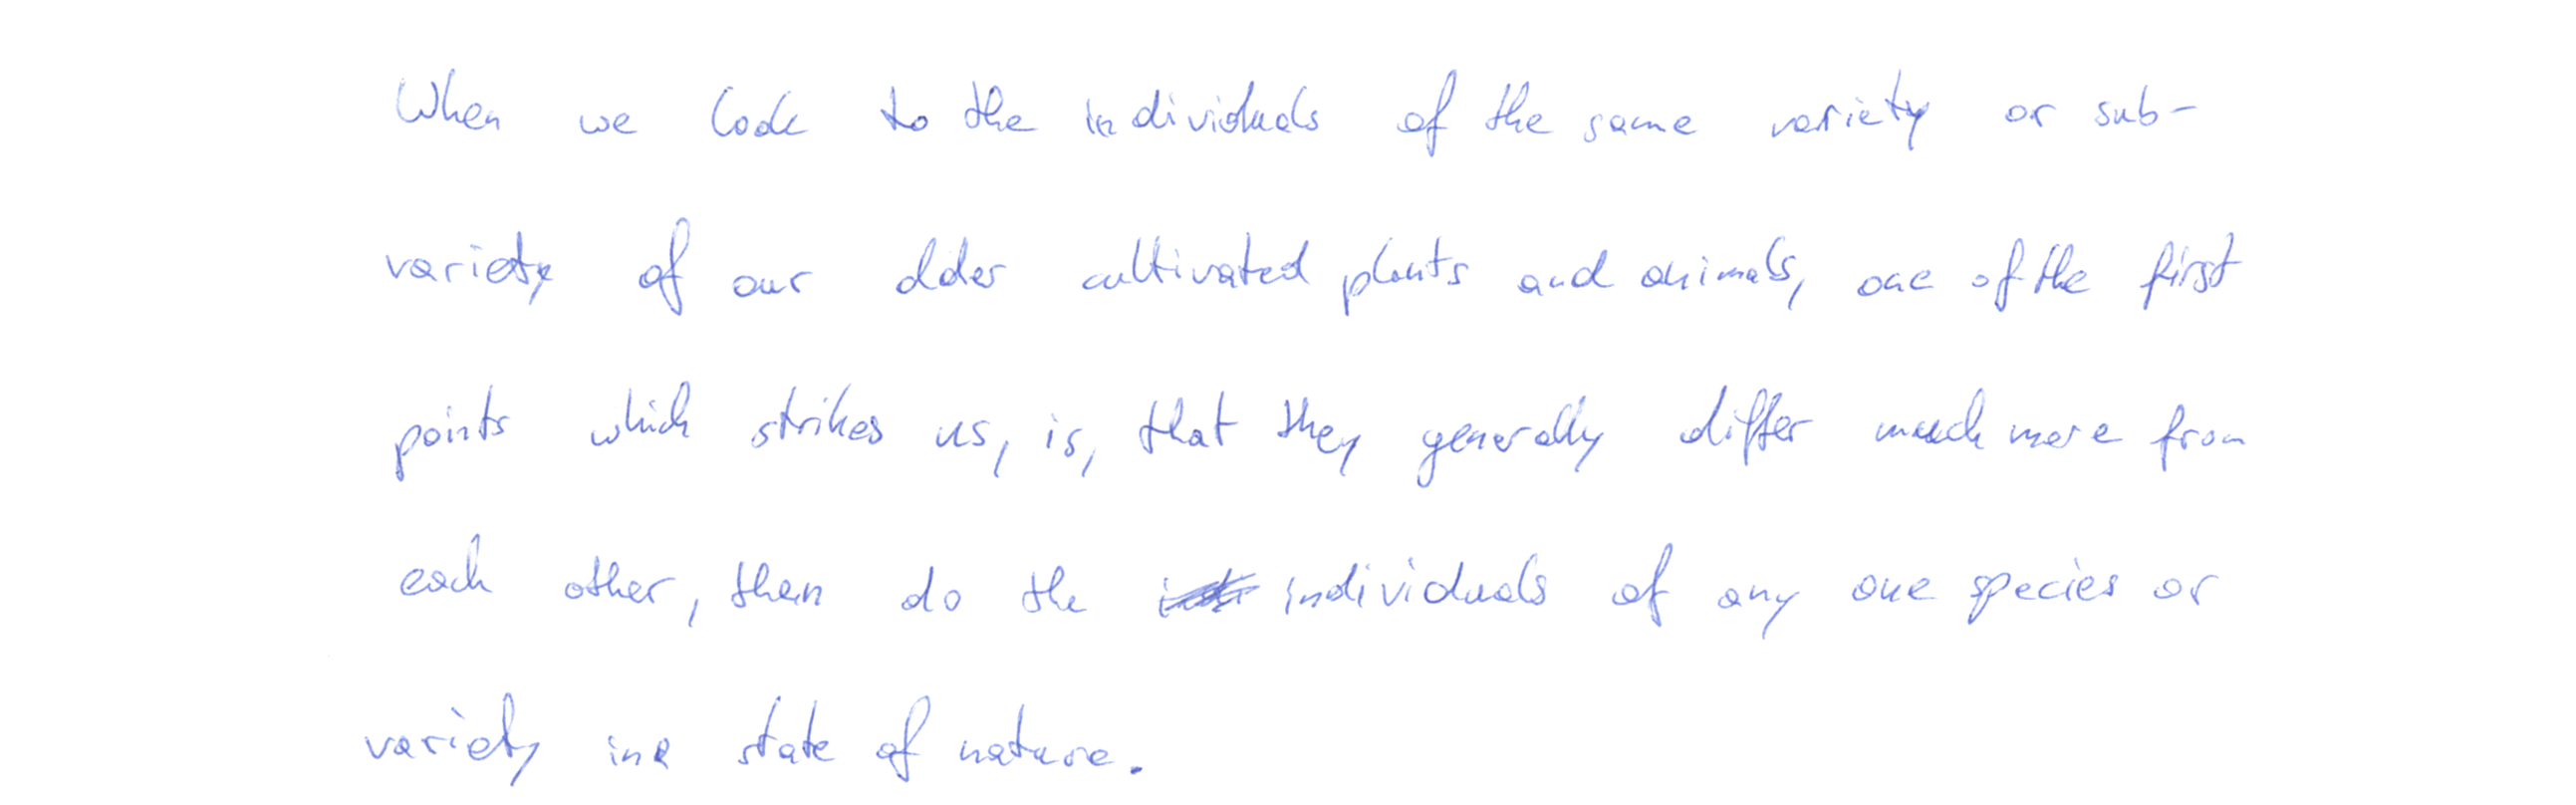 When we look to the individuals of the same variety or sub-
variety of our older cultivated plants and animals, one of the first
points which strikes us, is, that they generally differ much more from
each other, than do the individuals of any one species or
variety in a state of nature.